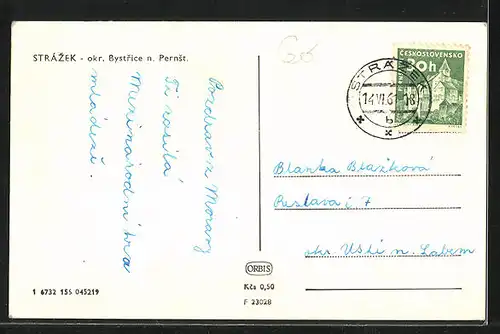 STRÁŽEK - okr. Bystřice n. Pernšt.
Pozdrav z Moravy
Ti posílá
Mezinárodní
mládeže.
1 6732 155 045219
ORBIS
Kčs 0,50
F 23028
ČESKOSLOVENSKO
30h
STRÁŽEK
14.VI.6 -18
b
Blanka Blažková
okr. Ústí n. Labem